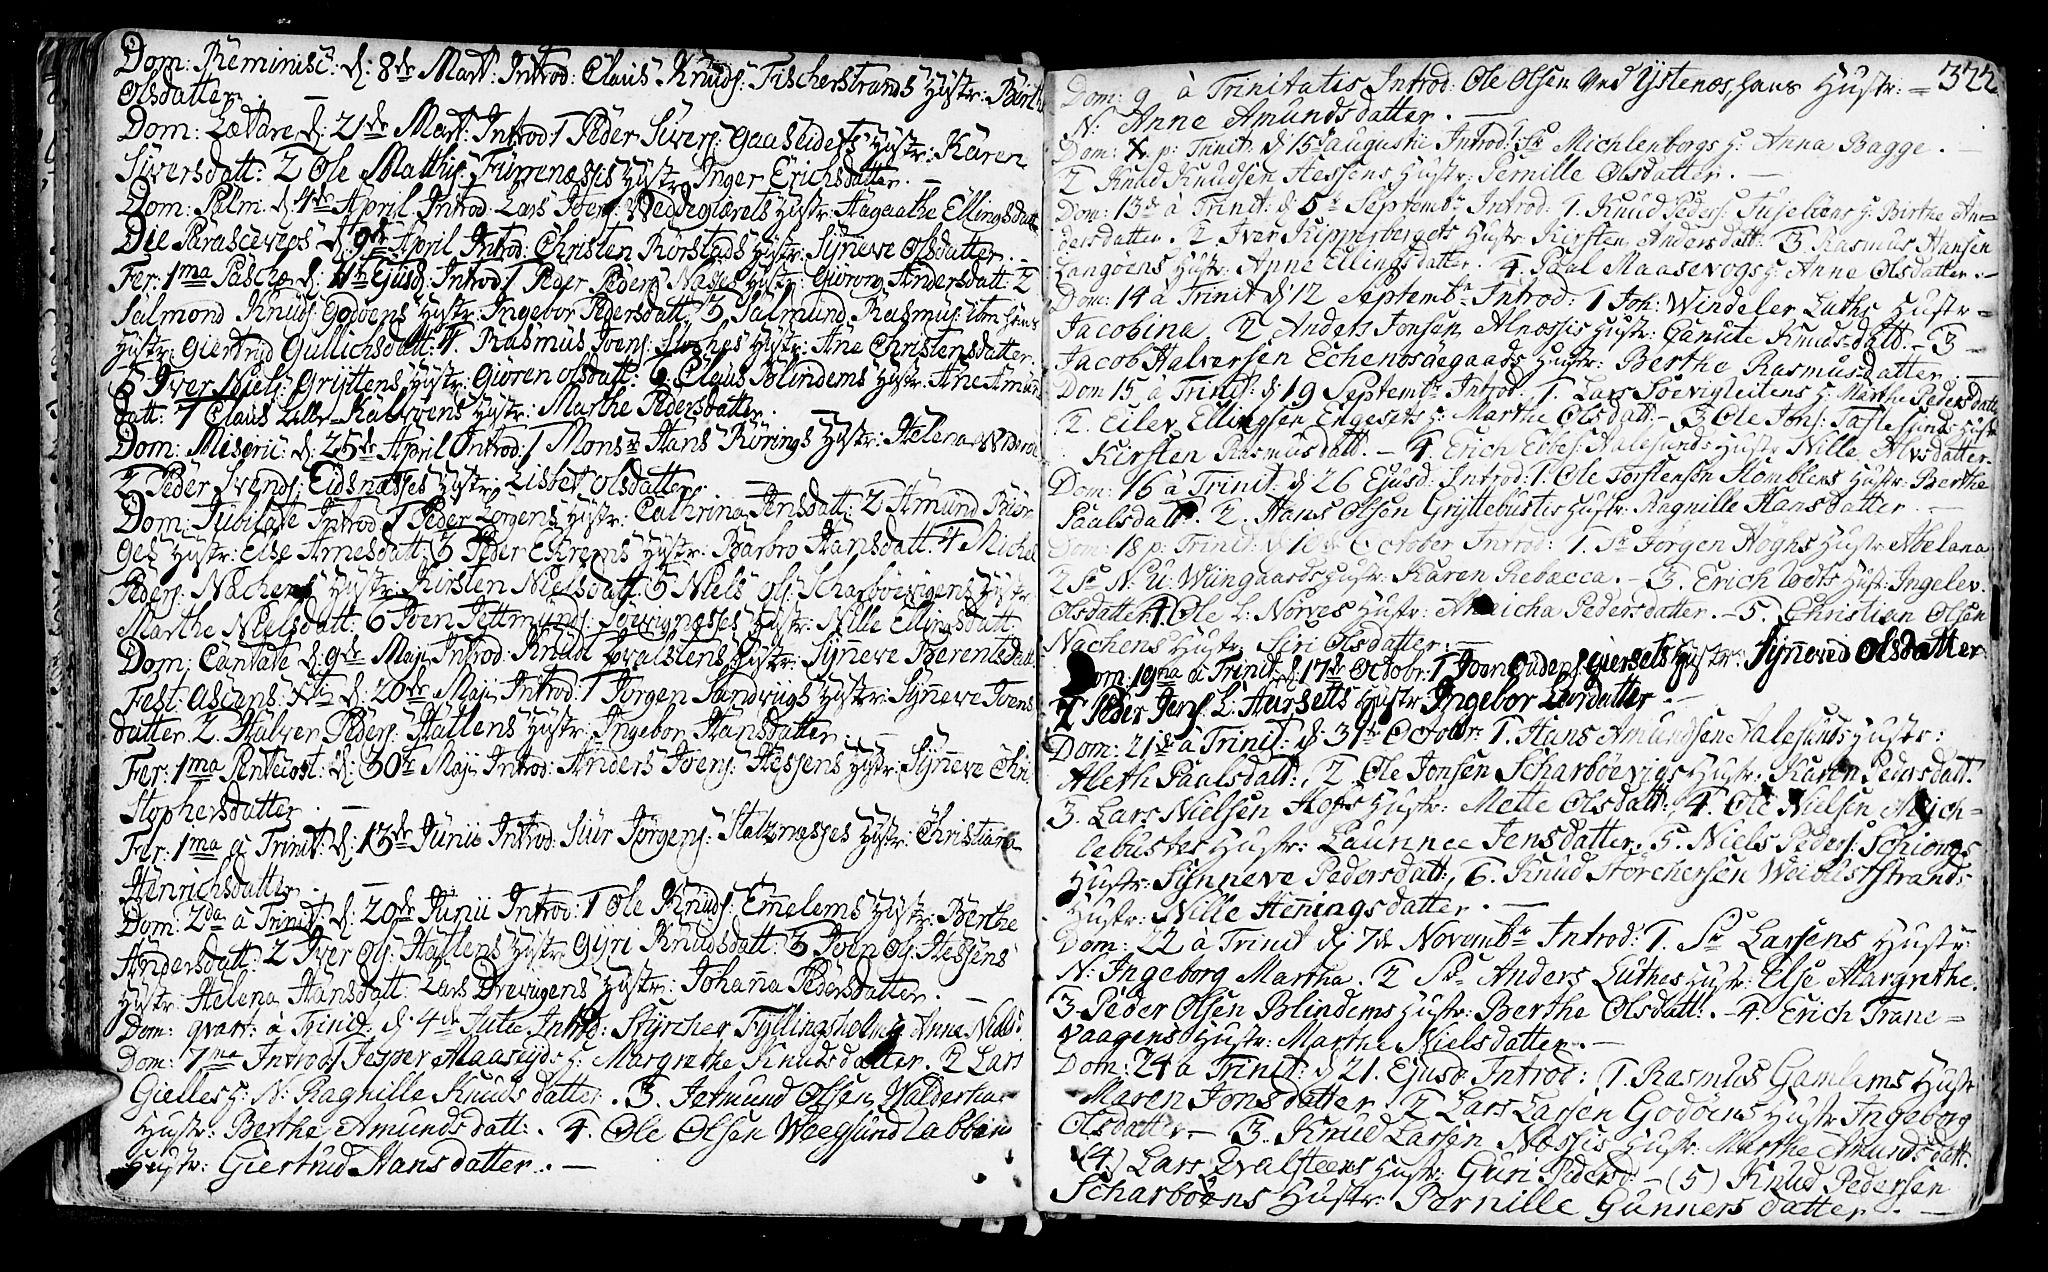 Dom: Reminisc: d: 8de Mart: Introd: Claus Knuds: Fischerstrands Hustr: Birthe
Olsdatter. —
Dom: Lætare d: 21de Mart: Introd: 1 Peder Sivers: Gaaseidets Hustr: Karen
Siversdatt: 2 Ole Matthis: Furrenæsses Hustr: Inger Erichsdatter. —
Dom: Palm: d: 4de April Introd: Lars Joens: Weddeglærets Hustr: Hagaathe Ellingsdatt
Die Parasceves d: 9de April Introd: Christen Rørstads Hustr: Synneve Olsdatter. —
Fer: 1ma Pasche d: 11te Ejusd: Introd: 1 Peder Peders: Nases Hustr: Giøron Andersdatt: 2
Salmond Knuds: Godøens Hustr: Ingebor Pedersdatt: 3 Salmund Rasmus: hans
Hustr: Giertrud Gullichsdatt: 4 Rasmus Joens: Hustr: Ane Christensdatter.
5 Iver Niels: Gryttens Hustr: Giøren Olsdatt: 6 Claus Blindems Hustr: Ane Amunds
datt: 7 Claus Lille-Kalvøens Hustr: Marthe Pedersdatter.
Dom: Miseric: d: 25de April Introd: 1 Monsr Hans Rørings Hustr: Helena
2 Peder Svends: Eidsnæsses Hustr: Lisbet Olsdatter. —
Dom: Jubilate Introd: 1 Peder Lorgens Hustr: Cathrina Jensdatt: 2 Amund Biør
ges Hustr: Else Arnesdatt: 3 Peder Eckrems Hustr: Barbro Hansdatt: 4 Michel
Peders: Nachens Hustr: Kirsten Nielsdatt: 5 Niels Ols: Scharbøevigens Hustr:
Marthe Nielsdatt: 6 Joen Jettmunds: Søevignæsses Hustr: Nille Ellingsdatt:
Dom: Cantate d: 9de Maji Introd: Knud Hustr: Synneve Berentsdatt
Fest: Ascens: Xti d: 20de Maji Introd: 1 Jørgen Sandviigs Hustr: Synneve Joens
datter. 2. Halver Peders: Hatlens Hustr: Ingebor Hansdatter. —
Fer: 1ma Pentecost: d: 30te Maji Introd: Anders Joens: Hessens Hustr: Synneve Chri
stophersdatter. —
Fer: 1ma a Trinit: d: 13de Junii Introd: Siur Jørgens: Stalznæsses Hustr: Christiana
Henrichsdatter. —
Dom: 2da a Trinit: d: 20de Junii Introd: 1 Ole Knuds: Emelems Hustr: Berthe
Andersdatt: 2 Iver Ols: Hatlens Hustr: Gyri Knudsdatt: 3 Joen Ols: Hessens
Hustr: Helena Hansdatt: Lars Drevigens Hustr: Johana Pedersdatter. —
Dom: qvart: à Trinit: d: 4de Julii Introd: Styrcher Fyllingsholms Anne Nielsd:
Dom: 7ma Introd: 1 Jesper Maaseyds H: Margrethe Knudsdatter. 2 Lars
Gielles H: N: Ragnille Knudsdatter. 3. Jetmund Olsen Walderhav
Hustr: Berthe Amundsdatt: . 4. Ole Olsen Weegsund Labbens
Hustr: Giertrud Hansdatter. —
Dom: 9 à Trinitatis Introd: Ole Olsen ved Ystenæs, hans Hustr: = 322
N: Anne Amundsdatter. —
Dom: X p: Trinit: d 15 Augusti Introd: 1 Sr Michlenborgs H: Anna Bagge. —
2 Knud Knudsen Hessens Hustr: Pernille Olsdatter. —
Dom: 13de à Trinit: d: 5te Septembr Introd: 1. Knud Peders: H: Birthe An=
dersdatter. 2. Iver Kipperbergets Hustr: Kirsten Andersdatt: 3 Rasmus Hansen
Langøens Hustr: Anne Ellingsdatter. 4. Paal Maasevogs H: Anne Olsdatter. —
Dom: 14 à Trinit d: 12 Septembr Introd: 1 Joh: Windeler Luths Hustr =
Jacobina. 2 Anders Jonsen Alnæssis Hustr: Canute Knudsdatt. — 3
Jacob Halversen Echenosægaards Hustr: Berthe Rasmusdatter. —
Dom 15 à Trinit: d 19 Septembr: Introd: 1. Lars Soevigleitens H: Marthe Pedersdatter
2. Eilev Ellingsen Engesets H: Marthe Olsdatt: — 3 Ole Jons: Taflesunds Hustr
Kirsten Rasmusdatt. — 4. Erich Aalesunds Hustr Nille Alvsdatter.
Dom: 16 à Trinit: d 26 Ejusd: Introd: 1. Ole Torstensen Humblens Hustr: Berthe
Paalsdatt: 2. Hans Olsen Gryttebustis Hustr: Ragnille Hansdatter —
Dom: 18 p: Trinit: d 10de October Introd: 1. Sr Jørgen Høghs Hustr Abelana
2 Sr N: U: Wiingaards Hustr: Karen Rebacca. — 3. Erich Hust: Ingelev
Olsdatter. 4. Ole L: Nørves Hustr: Annicha Pedersdatter. — 5. Christian Olsen
Nachens Hustr: Siri Olsdatter: —
Dom: 19na à Trinit: d 17de Octobr: 1 Joen Gudens: Giersets Hustr: Synneved Olsdatter
2 Peder Jens: L: Hursetts Hustr: Ingebor Larsdatter —
Dom: 21de à Trinit: d: 31te Octobr: 1. Hans Amundsen Aalesunds Hustr:
Aleth Paalsdatt: , 2 Ole Jonsen Scharbøevigs Hustr: Karen Pedersdatt.
3. Lars Nielsen Hofs Hustr: Mette Olsdatt: , 4. Ole Nielsen Mych=
lebustes Hustr: Laurence Jensdatter. 5. Niels Peders: Schiongs
Hustr: Synneve Pedersdatt: , 6. Knud Størchersen Weibustsstrands
Hustr: Nille Henningsdatter. —
Dom: 22 à Trinit d: 7de Novembr Introd: 1. Sr Larsens Hustr:
N: Ingeborg Martha. 2 Sr Anders Luthes Hustr: Else Margrethe.
3 Peder Olsen Blindems Hustr: Berthe Olsdatt: . — 4. Erich Trane=
vaagens Hustr: Marthe Nielsdatter. —
Dom: 24 à Trinit: d 21. Ejusd: Introd: 1. Rasmus Gamlems Hustr
Maren Jonsdatter 2 Lars Larsen Godøens Hustr Ingeborg
Olsdatter — 3. Knud Larsen Næssis Hustr: Marthe Amundsdatt.
(4) Lars Qvalsteens Hustr: Guri Pedersd: — (5) Knud Pedersen
Scharbøens Hustr: Pernille Gunnersdatter. —